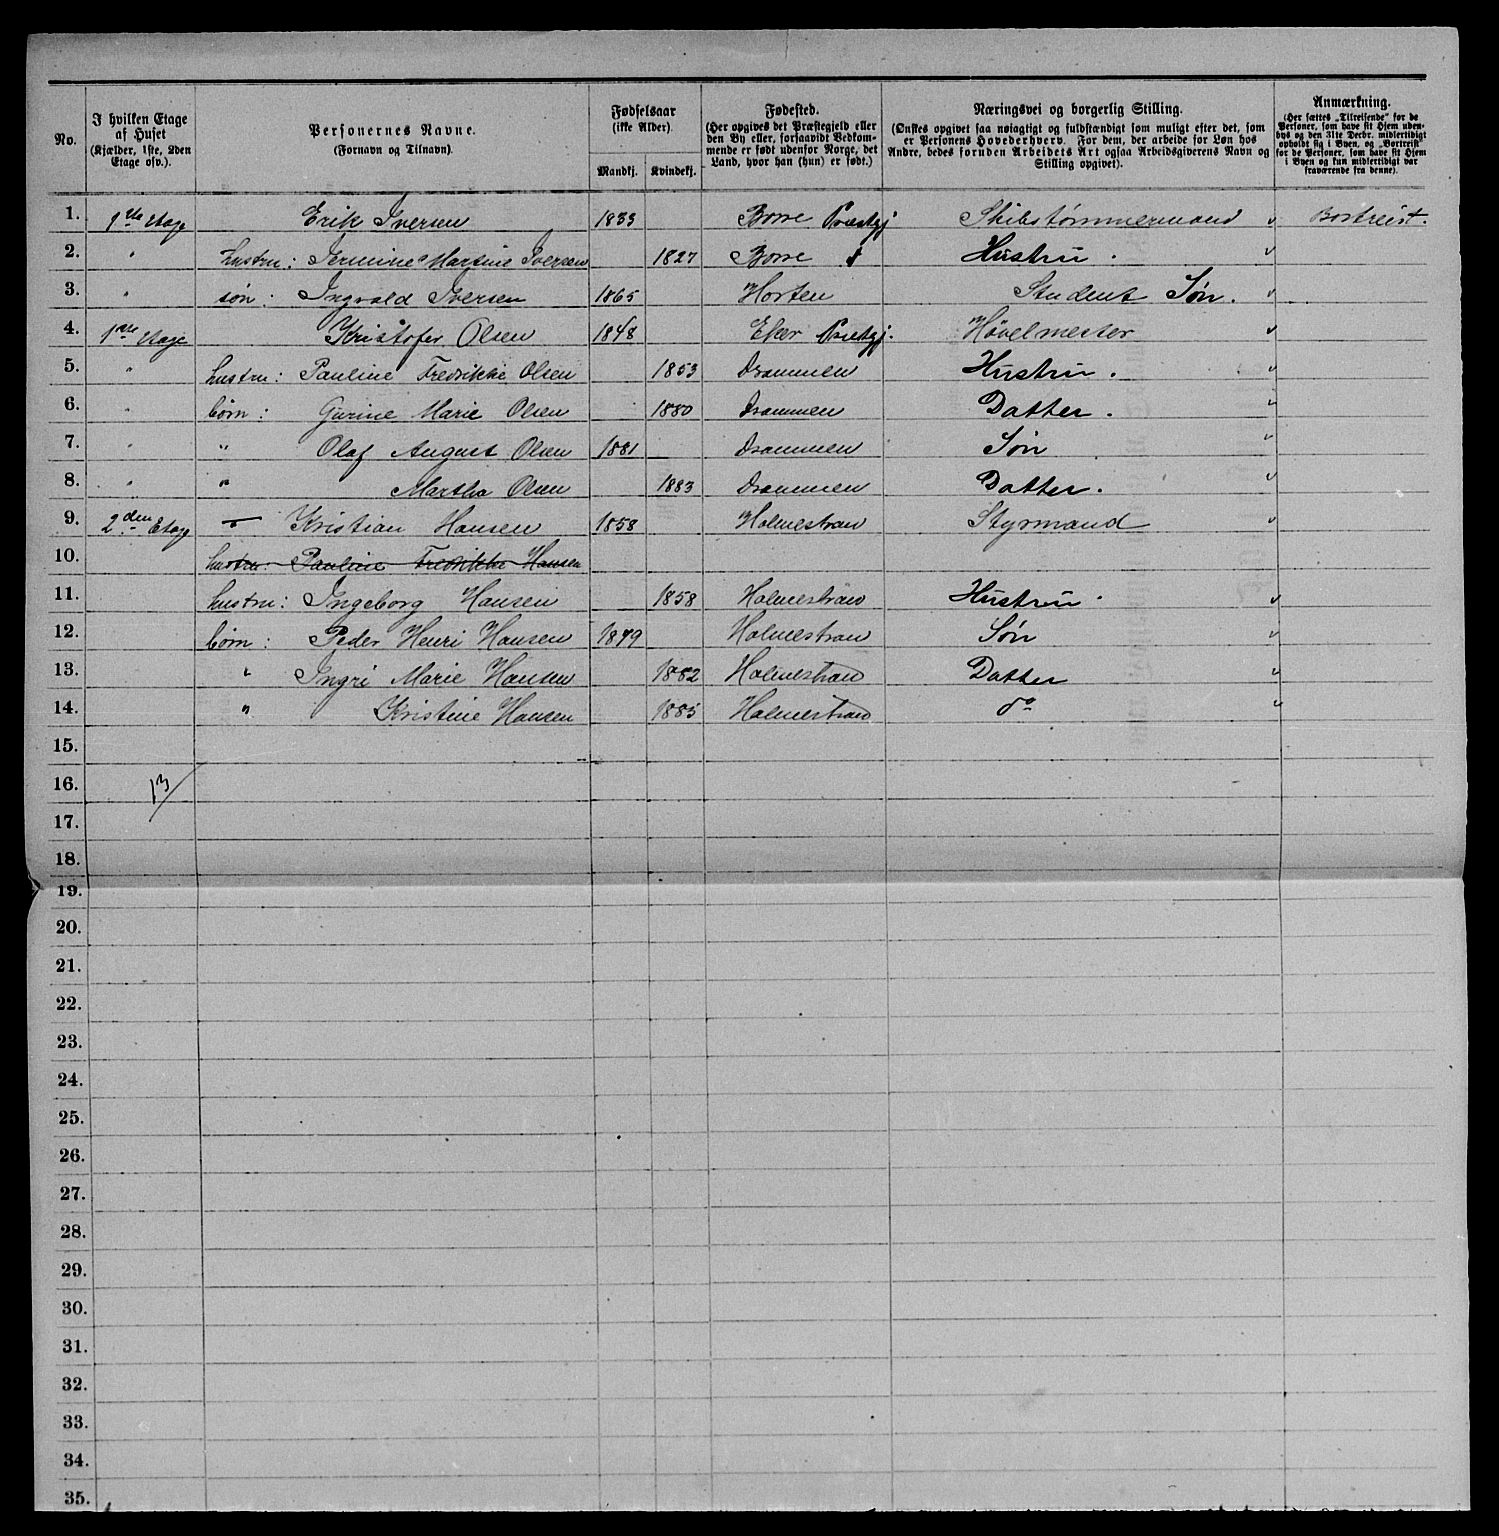 No.
I hvilken Etage af Huset (Kjælder, 1ste, 2den Etage osv.).
Personernes Navne. (Fornavn og Tilnavn).
Fødselsaar (ikke Alder).
Mandkj. Kvindekj.
Fødested.
(Her opgives det Præstegjeld eller den By eller, forsaavidt Vedkommende er født udenfor Norge, det Land, hvor han (hun) er født.)
Næringsvei og borgerlig Stilling.
(Ønskes opgivet saa nøiagtigt og fuldstændigt som muligt efter det, som er Personens Hovederhverv. For dem, der arbeide for Løn hos Andre, bedes foruden Arbeidets Art ogsaa Arbeidsgiverens Navn og Stilling opgivet).
Anmærkning.
(Her sættes „Tilreisende“ for de Personer, som have sit Hjem udenbys og den 31te Decbr. midlertidigt opholdt sig i Byen, og „Bortreist“ for de Personer, som have sit Hjem i Byen og kun midlertidigt var fraværende fra denne).
1. 1ste Etage Erik Iversen 1833 Borre Præstgj Skibstømmermand " Bortreist.
2. " hustru: Martine Iversen 1827 Borre " Hustru. "
3. " søn: Ingvald Iversen 1865 Horten Student Søn. "
4. 1ste Etage Kristofer Olsen 1848 Eker Præstgj. Høvelmester "
5. " hustru: Pauline Fredrikke Olsen 1853 Drammen Hustru. "
6. " børn: Gurine Marie Olsen 1880 Drammen Datter. "
7. " " Olaf August Olsen 1881 Drammen Søn "
8. " " Martha Olsen 1883 Drammen Datter. "
9. 2den Etage Kristian Hansen 1858 Holmestran Styrmand "
10. hustru: Pauline Fredrikke Hansen
11. hustru: Ingeborg Hansen 1858 Holmestran Hustru. "
12. børn: Peder Henri Hansen 1879 Holmestran Søn "
13. " Ingri Marie Hansen 1882 Holmestran Datter "
14. " Kristine Hansen 1885 Holmestran do "
15.
16. 13
17.
18.
19.
20.
21.
22.
23.
24.
25.
26.
27.
28.
29.
30.
31.
32.
33.
34.
35.